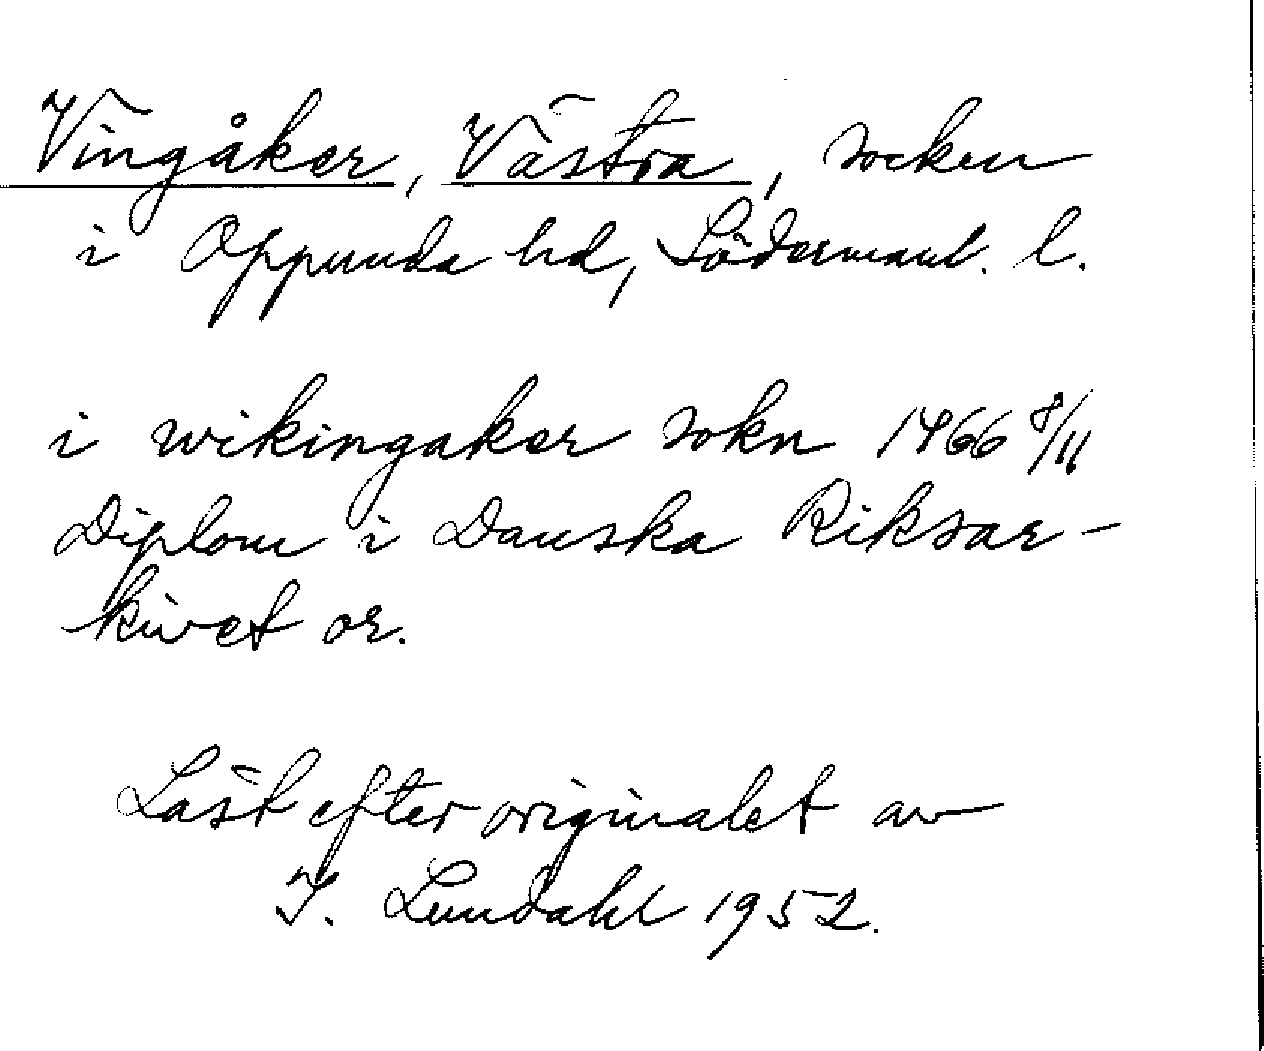 Vingåker, Västra, socken
i Oppunda hd, Södermanl. l.
i wikingaker sokn 1466 8/11
Diplom i Danska Riksar-
kivet or.
Läst efter originalet av
I. Lundahl 1952.